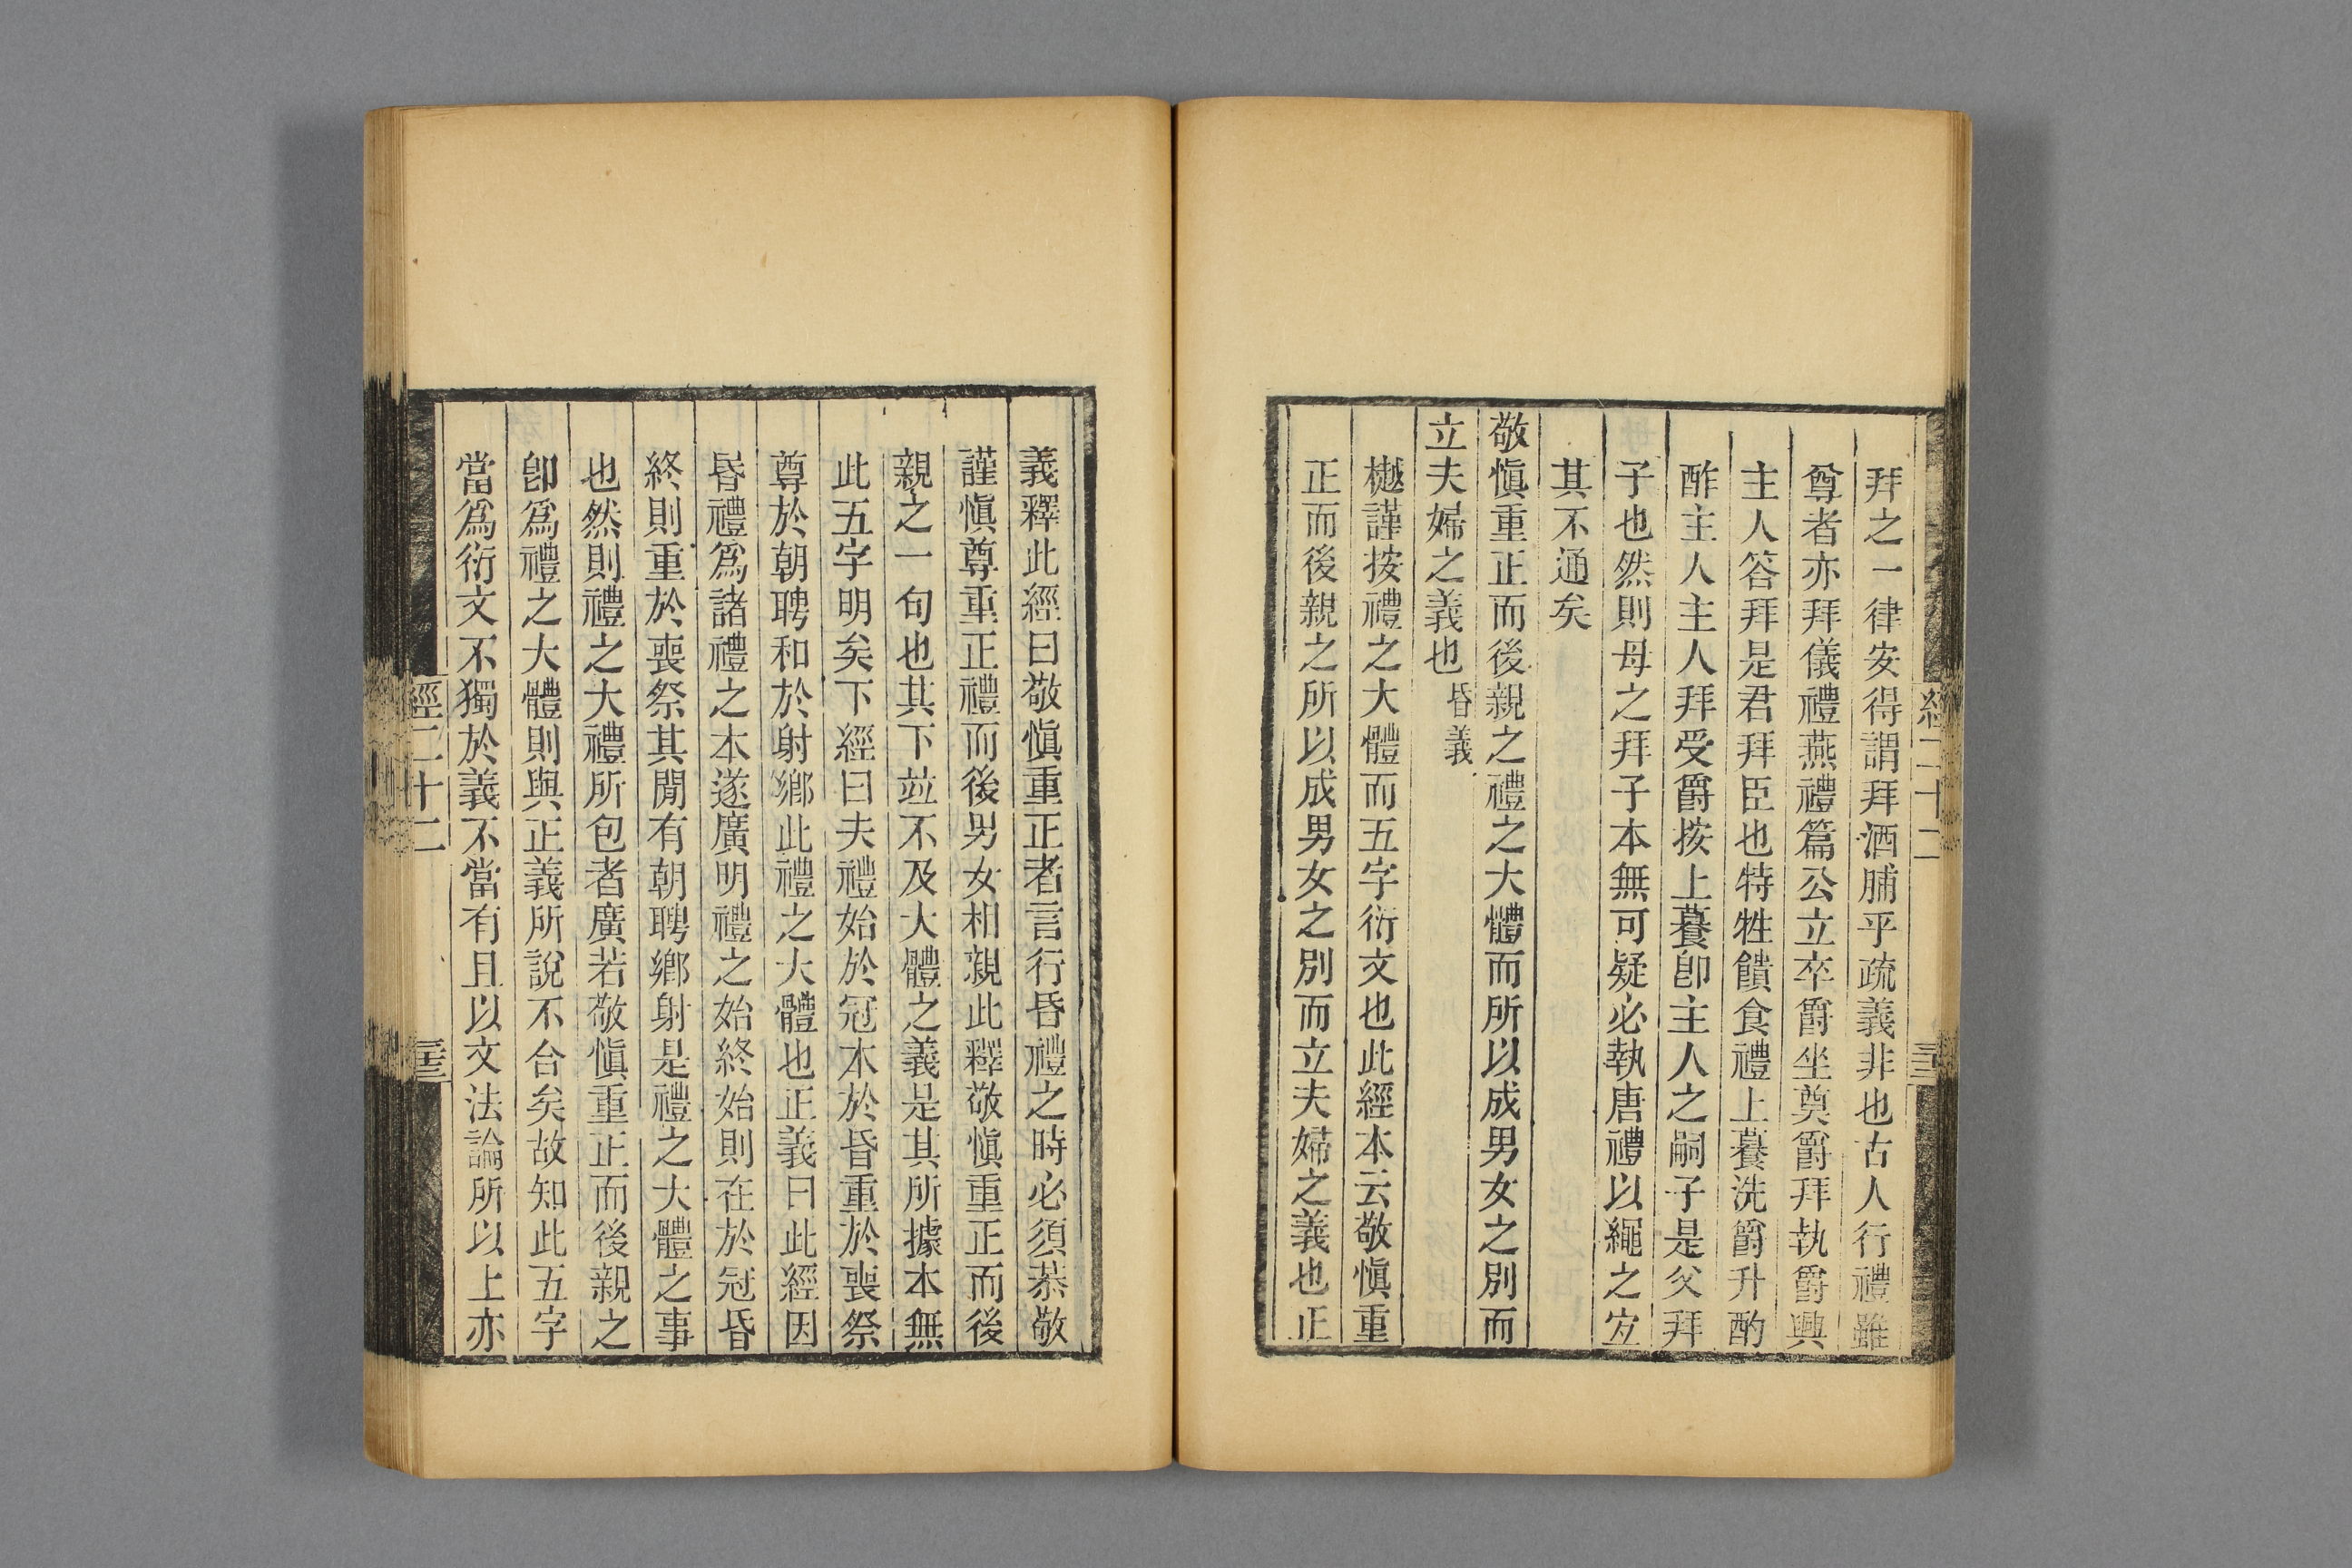 拜之一律安得謂拜酒脯乎疏義非也古人行禮雖
尊者亦拜儀禮燕禮篇公立卒爵坐奠爵拜執爵興
主人答拜是君拜臣也特牲饋食禮上養洗爵升酌
酢主人主人拜受爵按上養卽主人之嗣子是父拜
子也然則母之拜子本無可疑必執唐禮以繩之宐
其不通矣
敬愼重正而後親之禮之大體而所以成男女之別而
立夫婦之義也 昏義
樾謹按禮之大體而五字衍文也此經本云敬愼重
正而後親之所以成男女之別而立夫婦之義也正
經二十二
義釋此經曰敬愼重正者言行昏禮之時必須恭敬
謹愼尊重正禮而後男女相親此釋敬愼重正而後
親之一句也其下竝不及大體之義是其所據本無
此五字明矣下經曰夫禮始於冠本於昏重於喪祭
尊於朝聘和於射鄉此禮之大體也正義曰此經因
昏禮爲諸禮之本遂廣明禮之始終始則在於冠昏
終則重於喪祭其閒有朝聘鄉射是禮之大體之事
也然則禮之大禮所包者廣若敬愼重正而後親之
卽爲禮之大體則與正義所說不合矣故知此五字
當爲衍文不獨於義不當有且以文法論所以上亦
經二十二